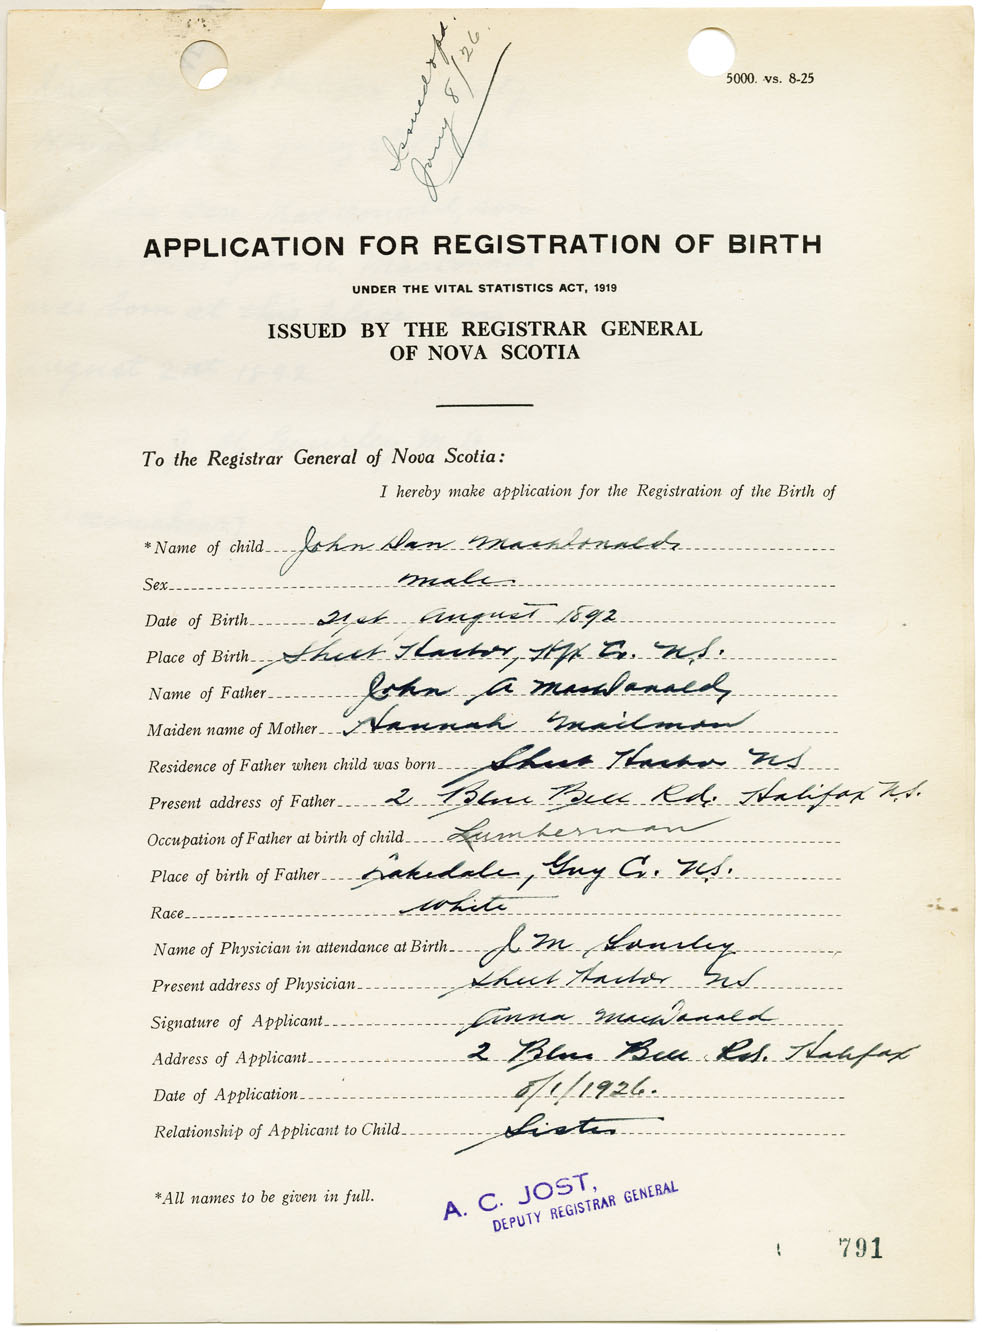 Issued
Jany 8/26.
5000. vs. 8-25
APPLICATION FOR REGISTRATION OF BIRTH
UNDER THE VITAL STATISTICS ACT, 1919
ISSUED BY THE REGISTRAR GENERAL
OF NOVA SCOTIA
To the Registrar General of Nova Scotia:
I hereby make application for the Registration of the Birth of
*Name of child John Dan MacDonald
Sex male
Date of Birth 21st August 1892
Place of Birth Sheet Harbor, Hfx Co. N.S.
Name of Father John A MacDonald
Maiden name of Mother Hannah Mailman
Residence of Father when child was born Sheet Harbor NS
Present address of Father 2 Blue Bell Rd. Halifax N.S.
Occupation of Father at birth of child Lumberman
Place of birth of Father Lakedale, Guy Co. N.S.
Race white
Name of Physician in attendance at Birth J M
Present address of Physician Sheet Harbor NS
Signature of Applicant Anna MacDonald
Address of Applicant 2 Blue Bell Rd. Halifax
Date of Application 8/1/1926.
Relationship of Applicant to Child Sister
*All names to be given in full.
A. C. JOST,
DEPUTY REGISTRAR GENERAL
791